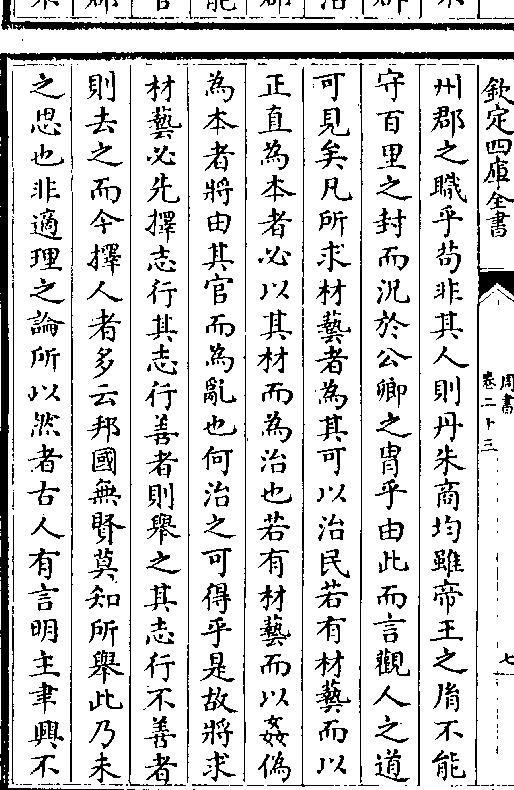 欽定四庫全書
周書
卷二十三
七
州郡之職乎苟非其人則丹朱商均雖帝王之𦙍不能
守百里之封而況於公卿之胄乎由此而言觀人之道
可見矣凡所求材藝者為其可以治民若有材藝而以
正直為本者必以其材而為治也若有材藝而以姦偽
為本者將由其官而為亂也何治之可得乎是故將求
材藝必先擇志行其志行善者則舉之其志行不善者
則去之而今擇人者多云邦國無賢莫知所舉此乃未
之思也非適理之論所以然者古人有言明主聿興不